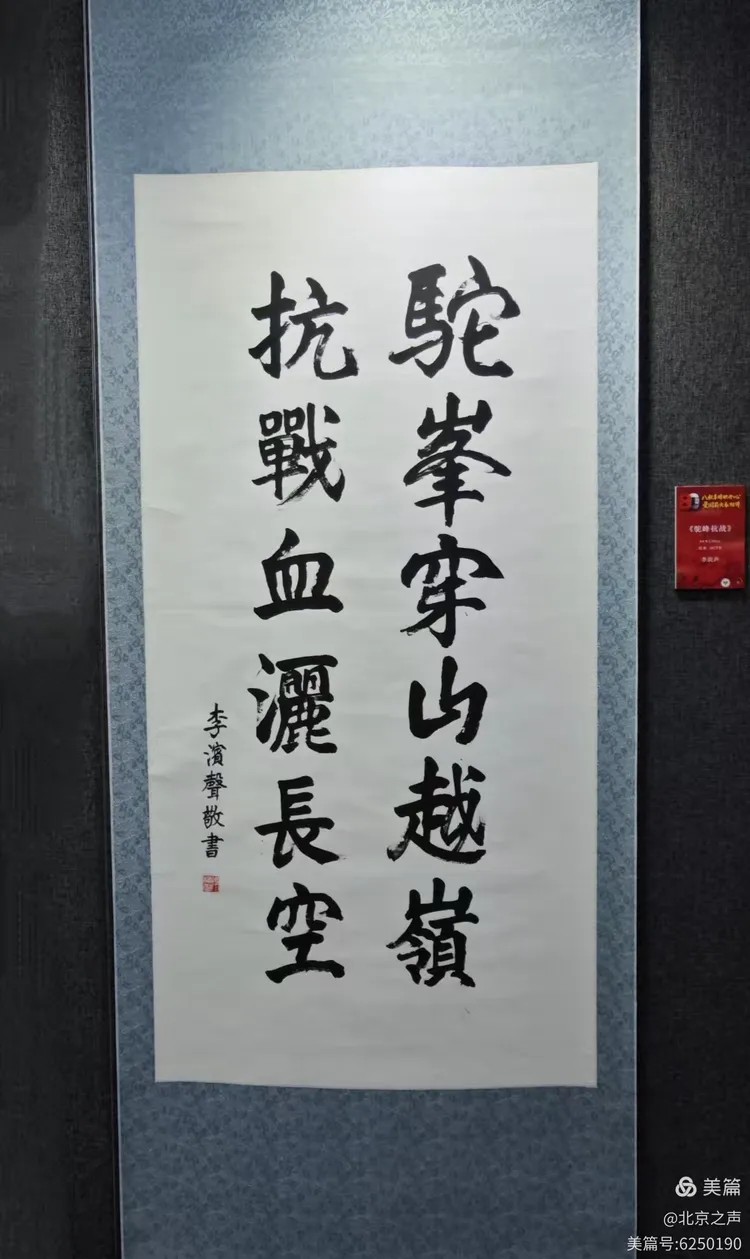 駝峯穿山越嶺
抗戰血灑長空
李濱聲敬書
《駝峰抗战》
美篇
@北京之声
美篇号:6250190